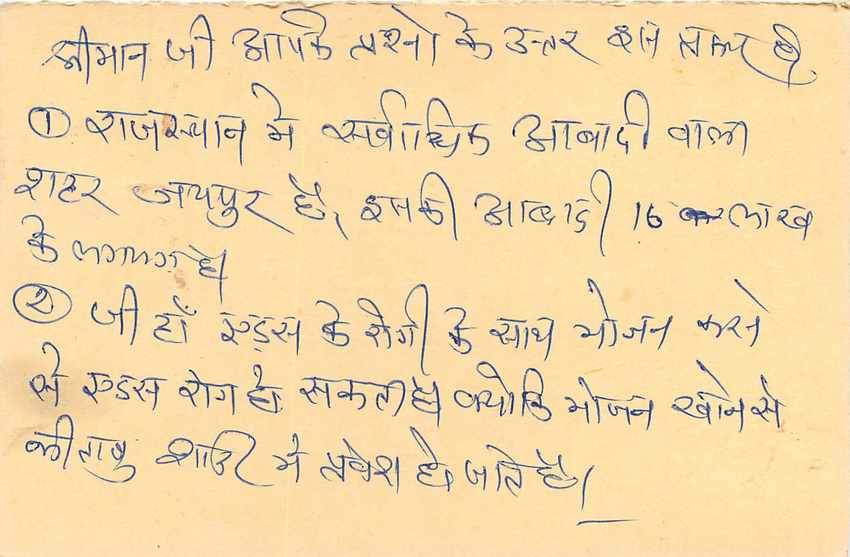 श्रीमान जी आपके प्रश्नो के उत्तर इस प्रकार है
① राजस्थान मे सर्वाधिक आबादी वाला
शहर जयपुर है, इसकी आबादी 16 लाख
के लगभग है।
② जी हाँ एड्स के रोगी के साथ भोजन करने
से एडस रोग हो सकता है क्योकि भोजन खाने से
कीताणु शरीर मे प्रवेश हो जाते है।